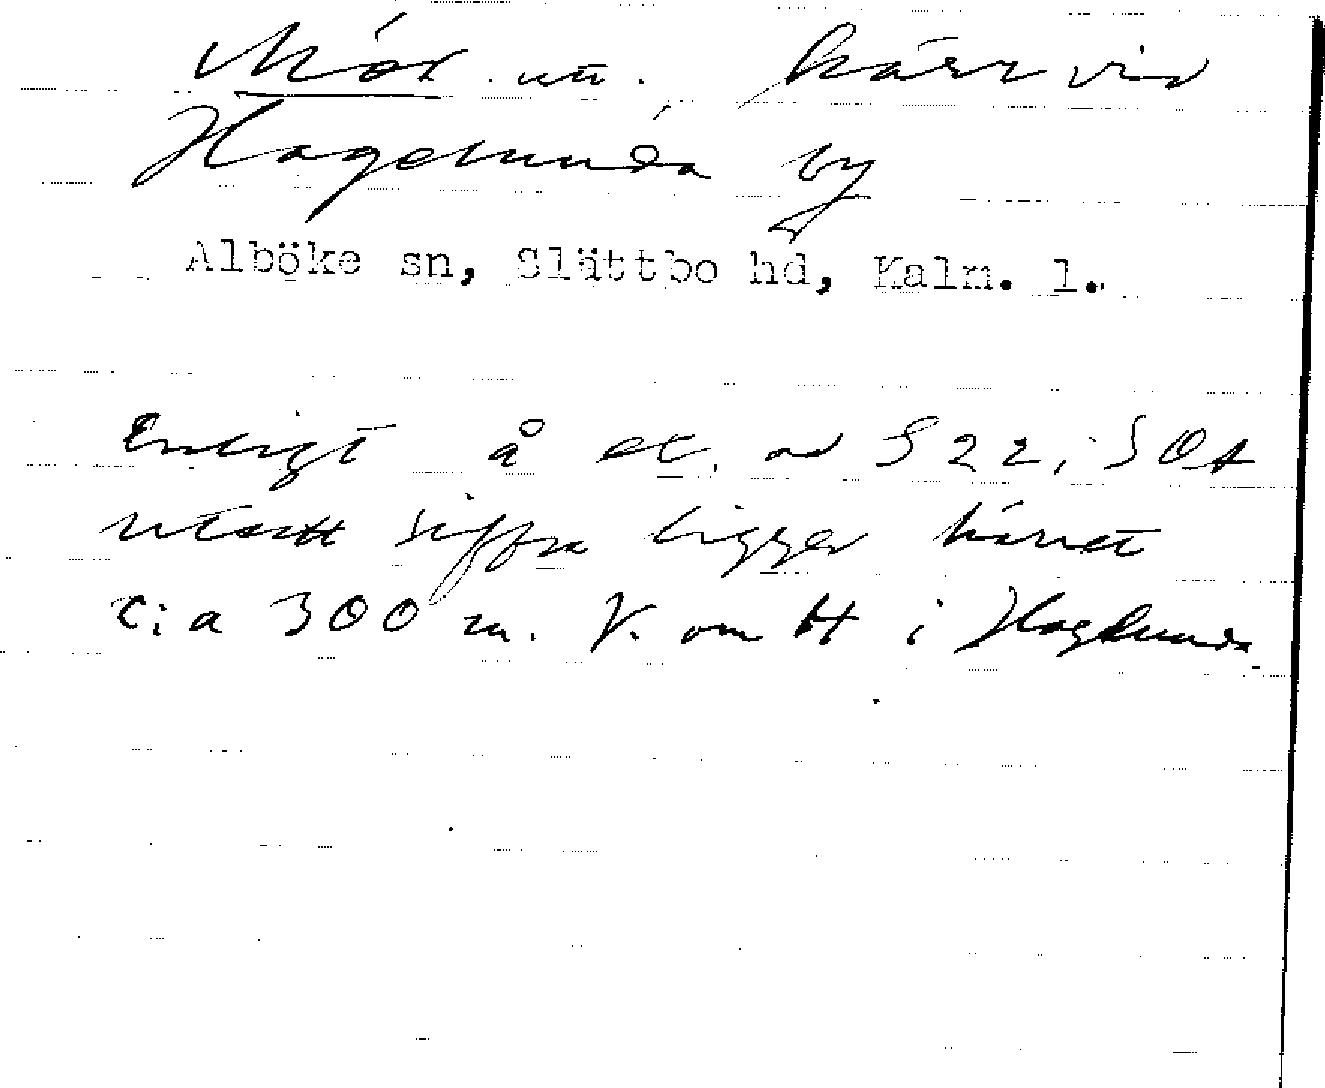 Mór. un. kärr vid
Hagelunda by
Alböke sn, Slättbo hd, Kalm. l.
Enligt å ek. S 22; SO
utsatt siffra ligger kärret
c:a 300 m. V. om H i Haglunda